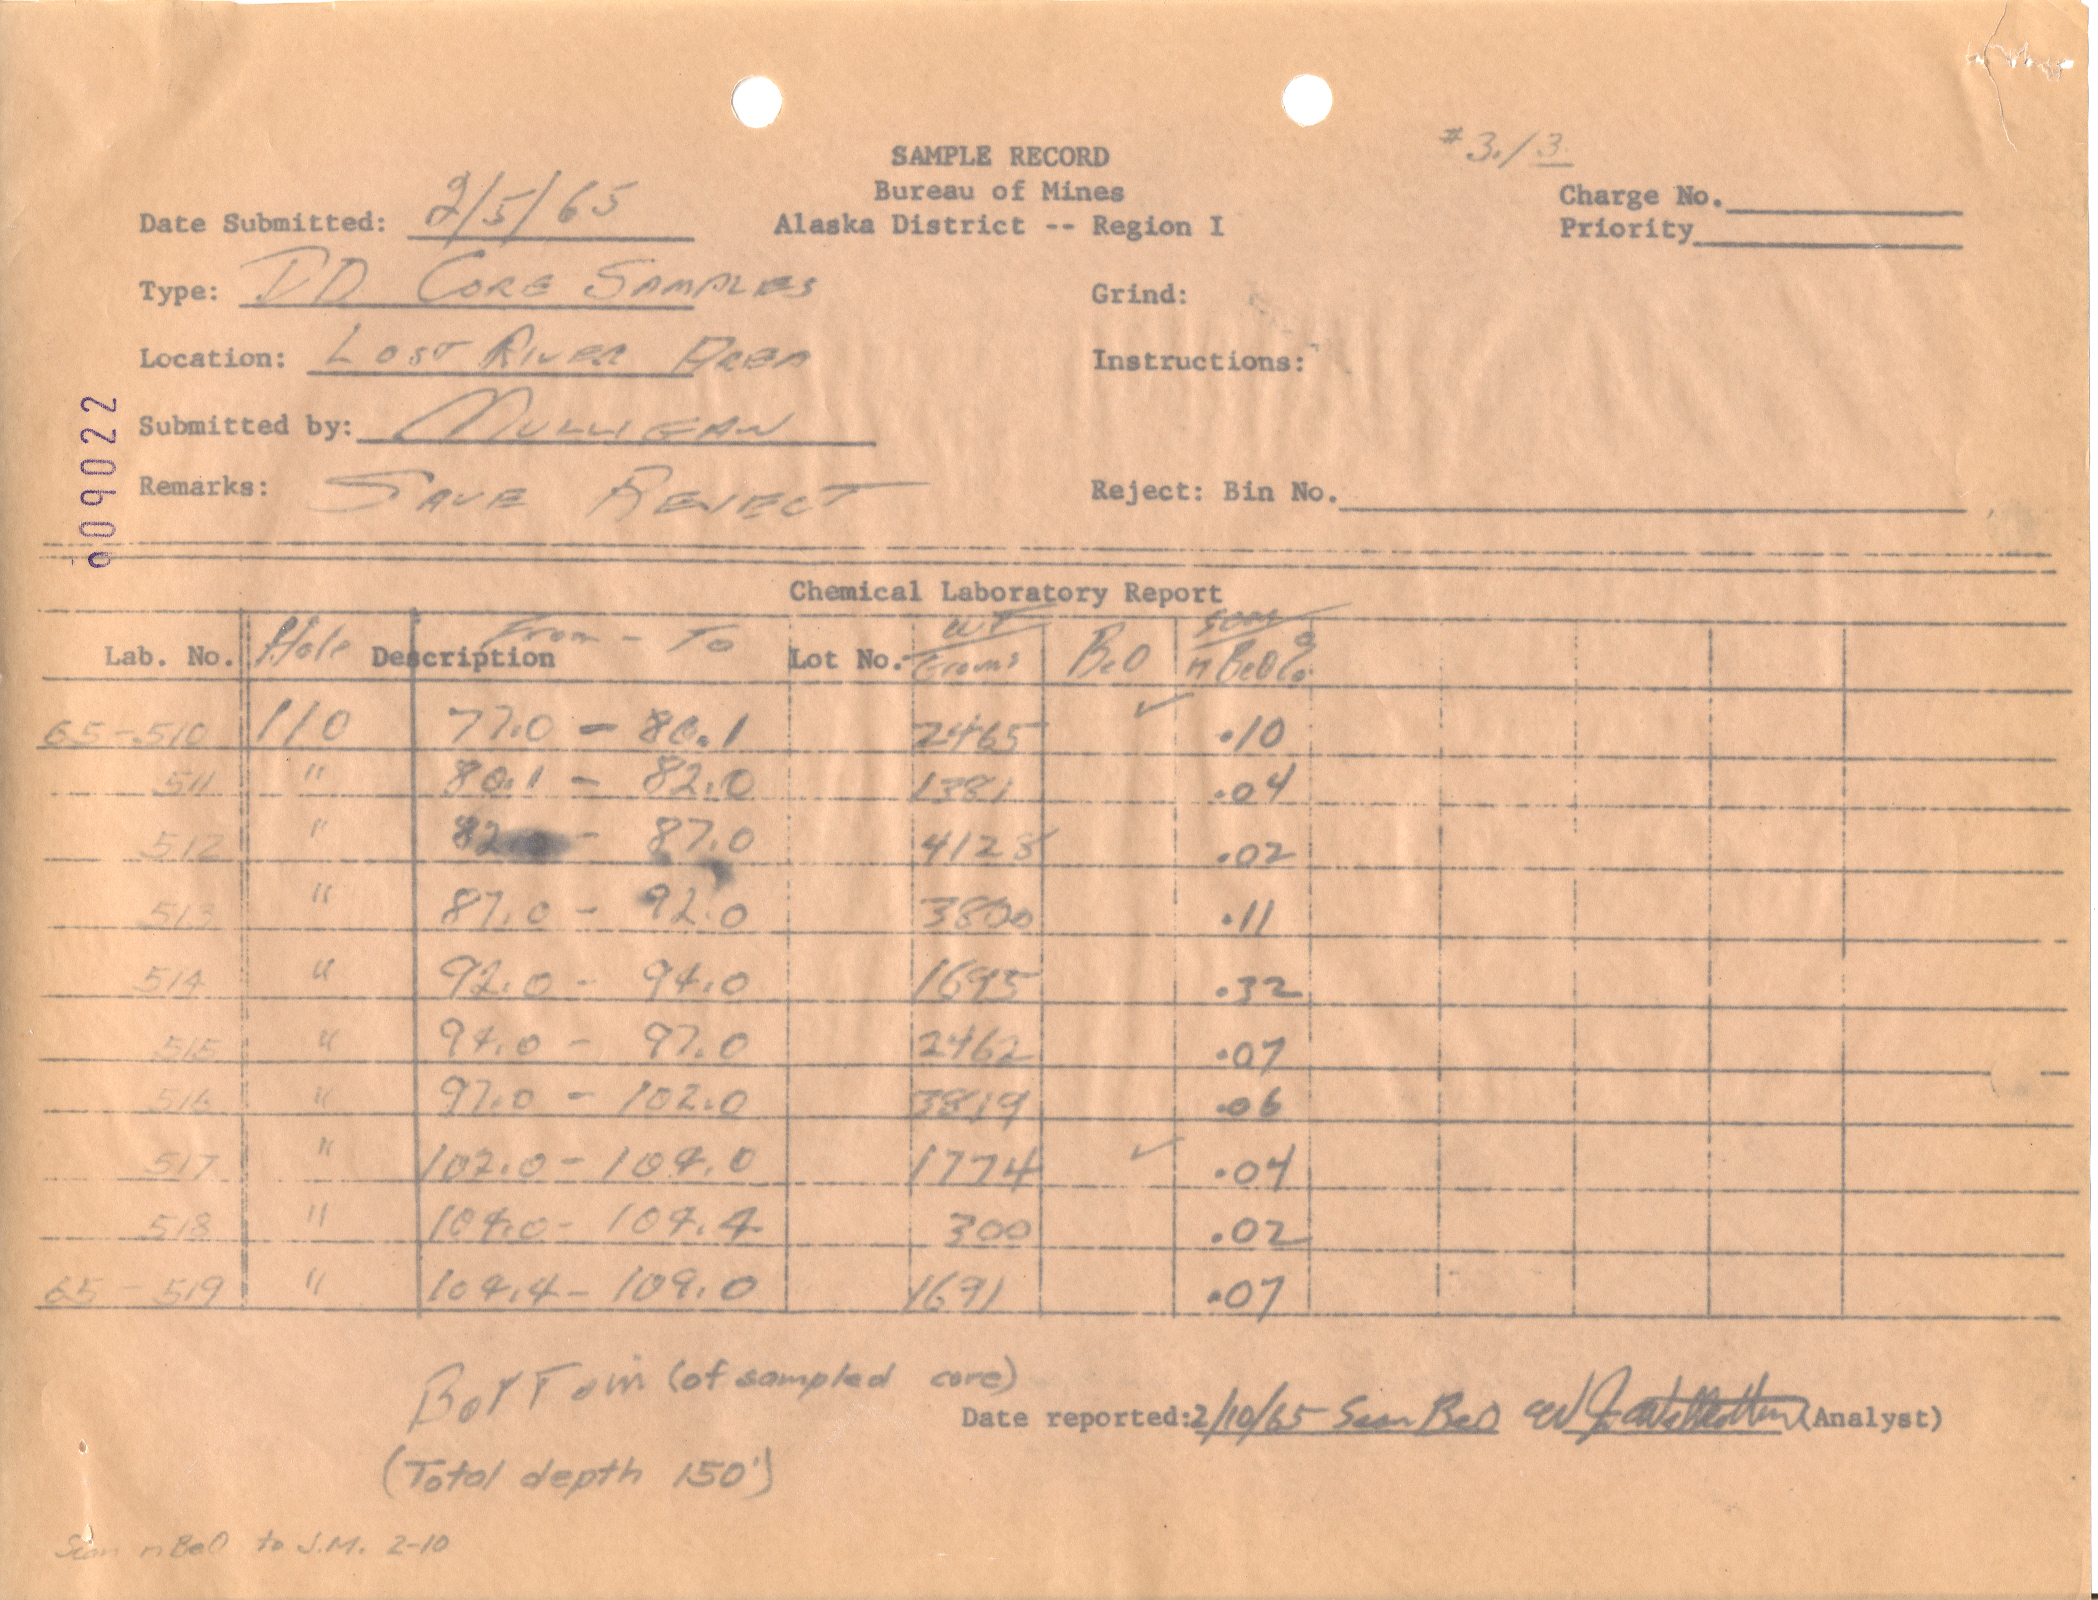 #3./3
SAMPLE RECORD
Bureau of Mines
Alaska District -- Region I
Charge No.
Priority
Date Submitted: 2/5/65
Type: DD CORE SAMPLES
Grind:
Location: LOST RIVER AREA
Instructions:
Submitted by: MULLIGAN
Remarks: SAVE REJECT
Reject: Bin No.
009022
Chemical Laboratory Report
Lab. No. Hole Description From - To Lot No. WT Grams BeO Scan n BeO %
65-510 110 77.0 - 80.1 2465 ✓ .10
511 " 80.1 - 82.0 1381 .04
512 " 82.0 - 87.0 4128 .02
513 " 87.0 - 92.0 3800 .11
514 " 92.0 - 94.0 1695 .32
515 " 94.0 - 97.0 2462 .07
516 " 97.0 - 102.0 3819 .06
517 " 102.0 - 104.0 1774 ✓ .04
518 " 104.0 - 104.4 300 .02
65-519 " 104.4 - 109.0 1691 .07
BOTTOM (of sampled core)
Date reported: 2/10/65 Scan BeO (Analyst)
(Total depth 150')
Scan n BeO to J.M. 2-10